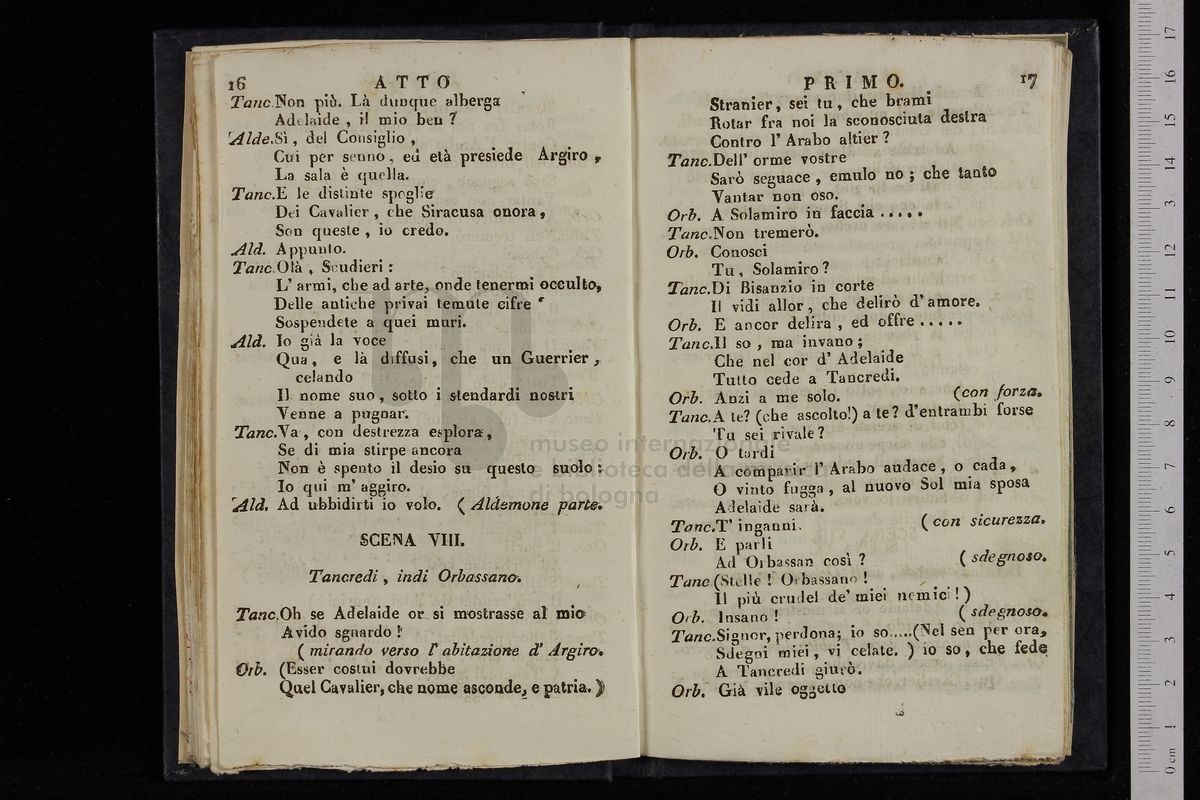 16 ATTO
Tanc. Non più. Là dunque alberga
Adelaide, il mio ben?
Alde. Sì, del Consiglio,
Cui per senno, ed età presiede Argiro,
La sala è quella.
Tanc. E le distinte spoglie
Dei Cavalier, che Siracusa onora,
Son queste, io credo.
Ald. Appunto.
Tanc. Olà, Scudieri:
L' armi, che ad arte, onde tenermi occulto,
Delle antiche privai temute cifre
Sospendete a quei muri.
Ald. Io già la voce
Qua, e là diffusi, che un Guerrier,
celando
Il nome suo, sotto i stendardi nostri
Venne a pugnar.
Tanc. Va, con destrezza esplora,
Se di mia stirpe ancora
Non è spento il desio su questo suolo:
Io qui m' aggiro.
Ald. Ad ubbidirti io volo. (Aldemone parte.
SCENA VIII.
Tancredi, indi Orbassano.
Tanc. Oh se Adelaide or si mostrasse al mio
Avido sguardo!
(mirando verso l' abitazione d' Argiro.
Orb. (Esser costui dovrebbe
Quel Cavalier, che nome asconde, e patria.)
PRIMO. 17
Stranier, sei tu, che brami
Rotar fra noi la sconosciuta destra
Contro l' Arabo altier?
Tanc. Dell' orme vostre
Sarò seguace, emulo no; che tanto
Vantar non oso.
Orb. A Solamiro in faccia .....
Tanc. Non tremerò.
Orb. Conosci
Tu, Solamiro?
Tanc. Di Bisanzio in corte
Il vidi allor, che delirò d' amore.
Orb. E ancor delira, ed offre .....
Tanc. Il so, ma invano;
Che nel cor d' Adelaide
Tutto cede a Tancredi.
Orb. Anzi a me solo. (con forza.
Tanc. A te? (che ascolto!) a te? d'entrambi forse
Tu sei rivale?
Orb. O tardi
A comparir l' Arabo audace, o cada,
O vinto fugga, al nuovo Sol mia sposa
Adelaide sarà.
Tanc. T' inganni. (con sicurezza.
Orb. E parli
Ad Orbassan così? (sdegnoso.
Tanc (Stelle! Orbassano!
Il più crudel de' miei nemici!)
Orb. Insano! (sdegnoso.
Tanc. Signor, perdona; io so.....(Nel sen per ora,
Sdegni miei, vi celate.) io so, che fede
A Tancredi giurò.
Orb. Già vile oggetto
museo internazionale
e biblioteca della musica
di bologna
0 cm 1 2 3 4 5 6 7 8 9 10 11 12 13 14 15 16 17